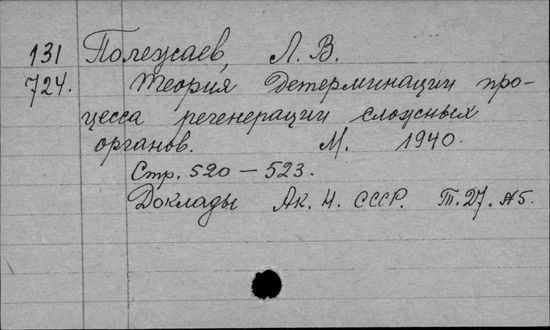 131 Полежаев, Л. В.
724. Теория детерминации про-
цесса регенерации сложных
органов. М. 1940.
Стр. 520 — 523.
Доклады Ак. Н. СССР. Т. 27. №5.